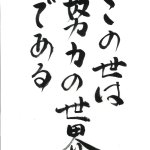 この世は
努力の世界
である